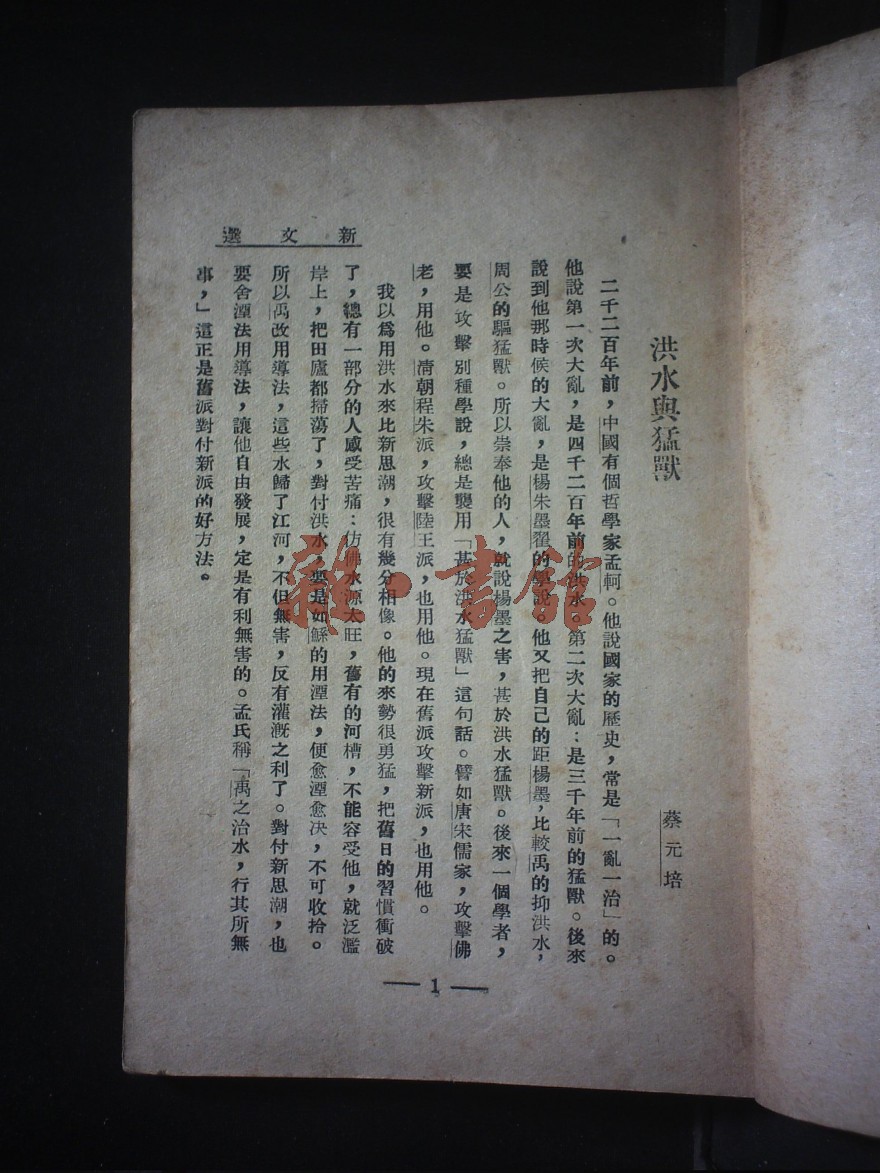 洪水與猛獸
蔡元培
二千二百年前，中國有個哲學家孟軻。他說國家的歷史，常是「一亂一治」的。
他說第一次大亂，是四千二百年前的洪水。第二次大亂：是三千年前的猛獸。後來
說到他那時候的大亂，是楊朱墨翟的學說。他又把自己的距楊墨，比較禹的抑洪水，
周公的驅猛獸。所以崇奉他的人，就說楊墨之害，甚於洪水猛獸。後來一個學者，
要是攻擊別種學說，總是襲用「甚於洪水猛獸」這句話。譬如唐宋儒家，攻擊佛
老，用他。清朝程朱派，攻擊陸王派，也用他。現在舊派攻擊新派，也用他。
我以爲用洪水來比新思潮，很有幾分相像。他的來勢很勇猛，把舊日的習慣衝破
了，總有一部分的人感受苦痛：仿佛水源太旺，舊有的河槽，不能容受他，就泛濫
岸上，把田廬都掃蕩了，對付洪水，要是如鯀的用湮法，便愈湮愈决，不可收拾。
所以禹改用導法，這些水歸了江河，不但無害，反有灌漑之利了。對付新思潮，也
要舍湮法用導法，讓他自由發展，定是有利無害的。孟氏稱「禹之治水，行其所無
事，」這正是舊派對付新派的好方法。
新文選
— 1 —
雜·書館